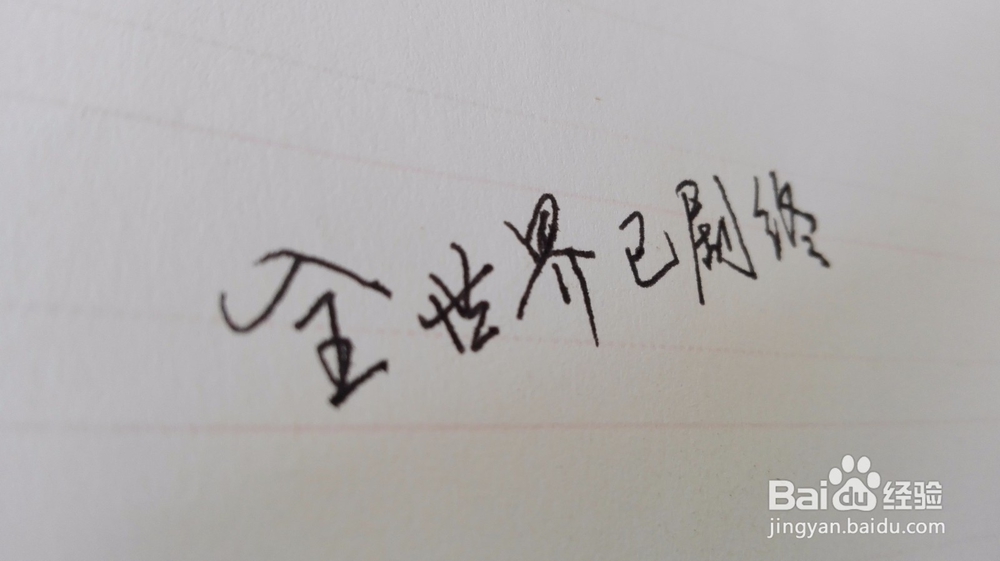 全世界已剧终
Baidu经验
jingyan.baidu.com